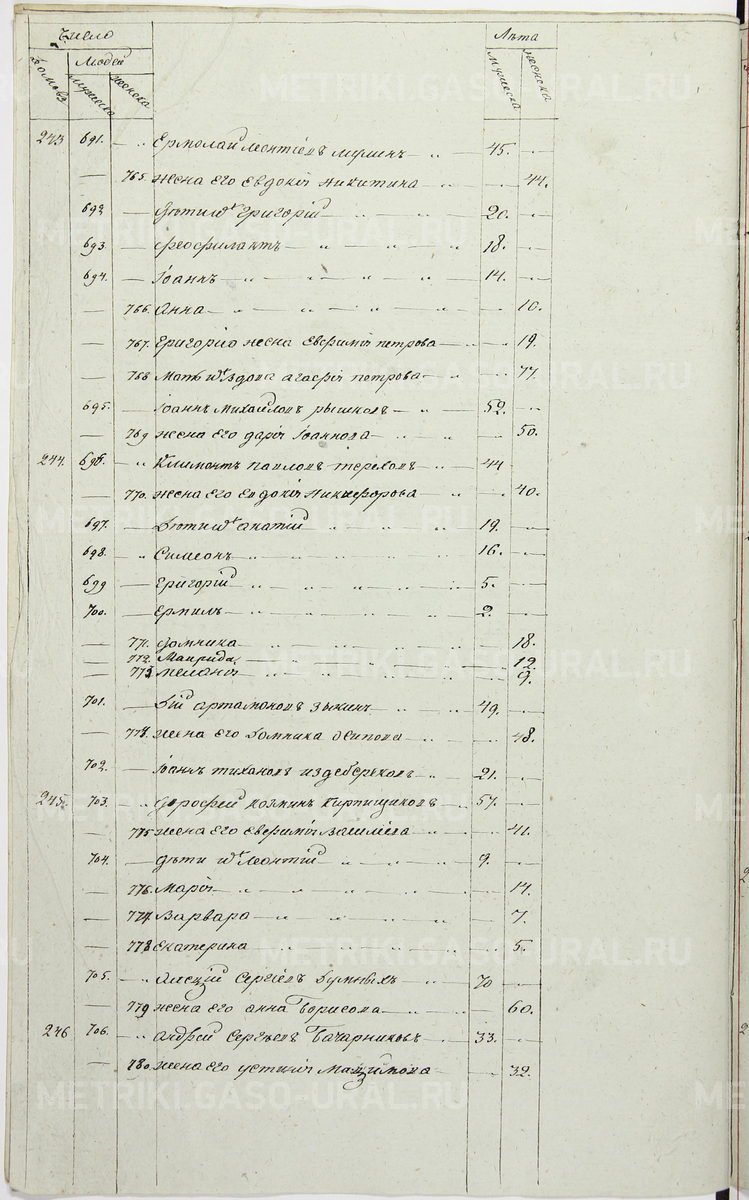 Число Лѣта
Домовъ Людей мужеска женска мужеска женска
243 691. Ермолай Леонтіевъ 45.
765. жена его Евдокія Никитина 44.
692 Дѣти ихъ Григорій 20.
693. Феофилактъ 18.
694. Іоаннъ 14.
766. Анна 10.
767. Григорію жена Евфимія Петрова 19.
768 Мать ихъ вдова Агафія Петрова 77.
695. Іоаннъ Михайловъ Рышковъ 52.
769 жена его Дарія Іоаннова 50.
244. 696. Климонтъ Павловъ Тереховъ 44
770. жена его Евдокія Никифорова 40.
697. Дѣти ихъ 19.
698. Симеонъ 16.
699 Григорій 5.
700. Ермилъ 2.
771. Домника 18.
772. Маврида 12.
773 Меланія 9.
701. Артамоновъ Зыкинъ 49.
774. жена его Домника Осипова 48.
702. Іоаннъ Тихановъ 21.
245. 703. Дорофей Козминъ Кирпищиковъ 57.
775 жена его Евфимія 41.
704. Дѣти ихъ Леонтій 9.
776. Марія 14.
777. Варвара 7.
778 Екатерина 5.
705. Алексій Сергіевъ 70
779 жена его Анна Борисова 60.
246 706. Андрей Сергѣевъ 33.
780. жена его Устинія Максимова 32.
METRIKI.GASO-URAL.RU